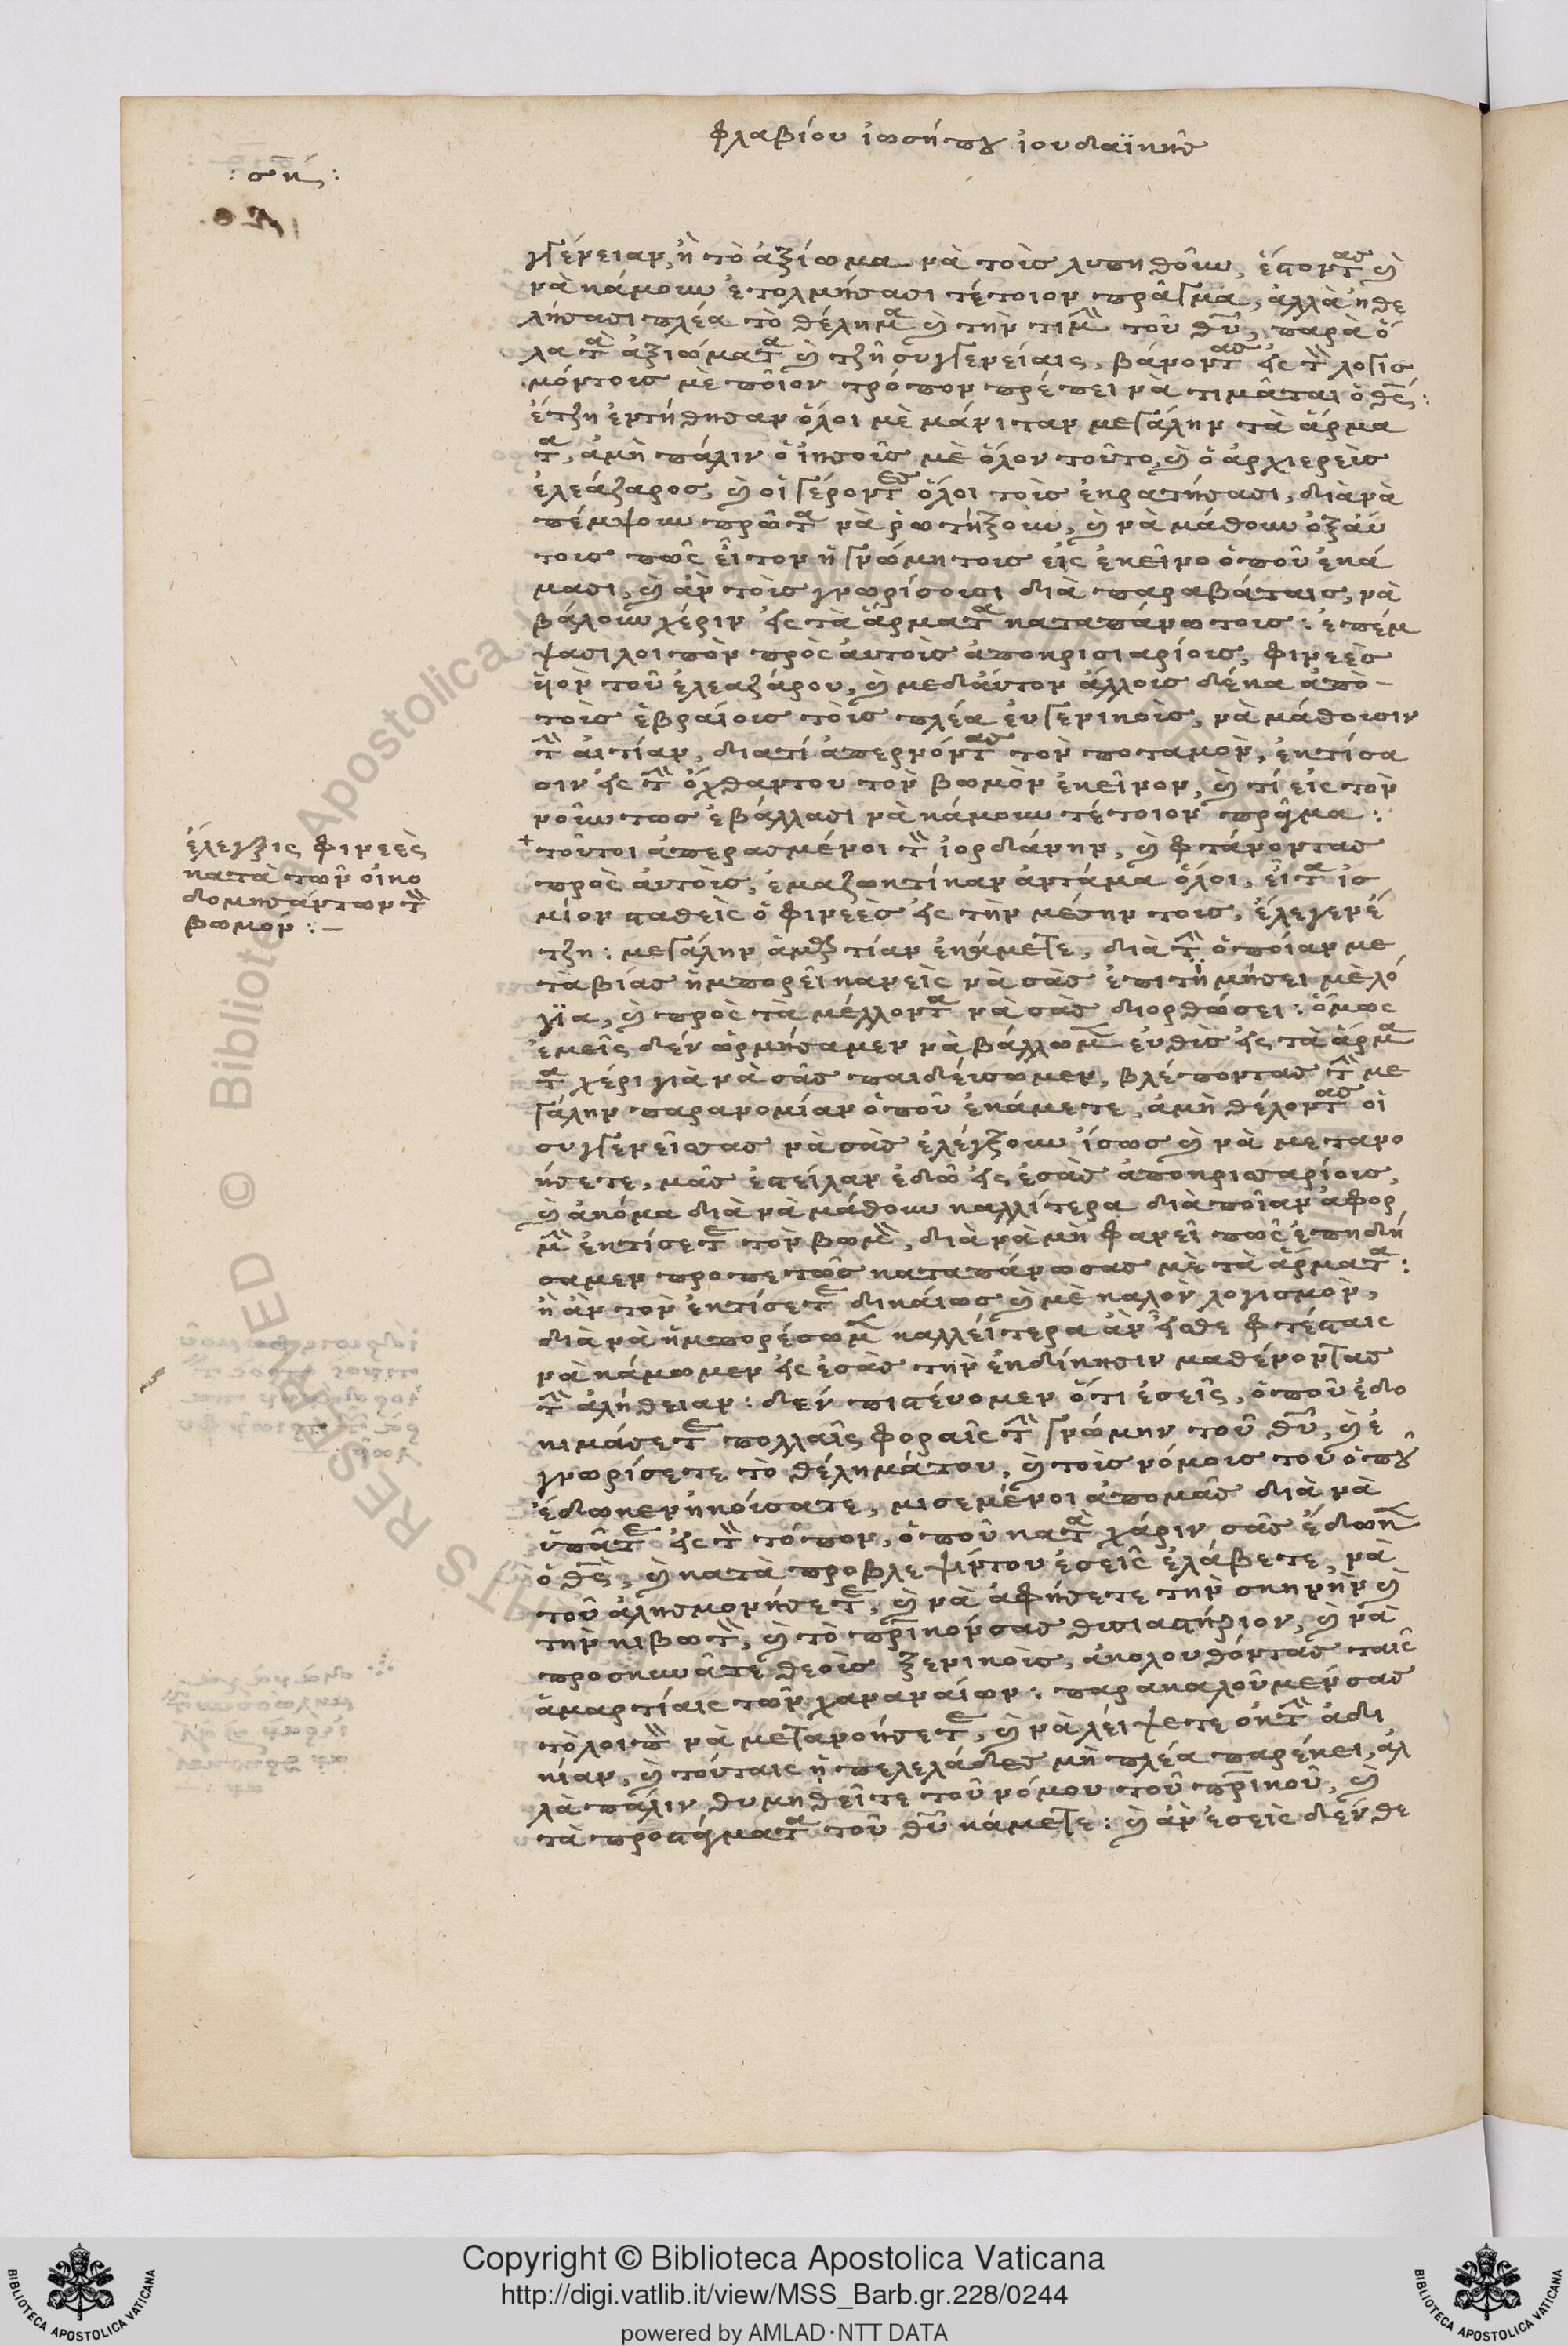 φλαβίου ἰωσήπου ἰουδαϊκῆς
: σή :
γγένειαν, ἢ τὸ ἀξίωμα νὰ τοὺς λυπηθοῦν, ἔστοντας καὶ
νὰ κάμουν ἐτολμήσασι τέτοιον πρᾶγμα, ἀλλὰ ἠθε
λήσασι πλέα τὸ θέλημα καὶ τὴν τιμὴν τοῦ θῦ, παρὰ ὅ
λα τὰ ἀξιώματα καὶ τζῆ συγγενείαις, βάνοντας εἰς τὸν λογισ
μόντους μὲ ποῖον τρόπον πρέπει νὰ τιμᾶται ὁ θς :
ἔτζη ἐντήθησαν ὅλοι μὲ μάνιταν μεγάλην τὰ ἄρμα
τα, ἀμὴ πάλιν ὁ ἰησοῦς μὲ ὅλον τοῦτο, καὶ ὁ ἀρχιερεὺς
ἐλεάζαρος, καὶ οἱ γέροντες ὅλοι τοὺς ἐκρατήσασι, διὰ νὰ
πέμψουν πρῶτα νὰ ῥωτήξουν, καὶ νὰ μάθουν ὀξαὐ
τους πῶς εἶτον ἡ γνώμη τους εἰς ἐκεῖνο ὁποῦ ἐκά
μασι, καὶ ἂν τοὺς γνωρίσουσι διὰ παραβάταις, νὰ
βάλουν χέριν εἰς τὰ ἄρματα καταπάνω τους : ἐπέμ
ψασι λοιπὸν πρὸς αὐτοὺς ἀποκρισιαρίους, φινεὲς
ἡὸν τοῦ ἐλεαζάρου, καὶ μεδαὖτον ἄλλους δέκα ἀπὸ
τοὺς ἑβραίους τοὺς πλέα εὐγενικοὺς, νὰ μάθουσιν
τὴν αἰτίαν, διατί ἀπερνόντας τὸν ποταμὸν, ἐκτίσα
σιν εἰς τὴν ὄχθαντου τὸν βωμὸν ἐκεῖνον, καὶ τί εἰς τὸν
νοῦν τως ἐβάλλασι νὰ κάμουν τέτοιον πρᾶγμα :
ἐλεγξις φινεὲς
κατὰ τῶν οἰκο
δομησάντων τὸν
βωμόν : –
+ τοῦτοι ἀπερασμένοι τὸν ἰορδάνην, καὶ φτάνοντας
πρὸς αὐτοὺς, ἐμαζωκτίκαν ἀντάμα ὅλοι, εἶτα ἰσ
μίον σταθεὶς ὁ φινεὲς εἰς τὴν μέσην τους, ἐλεγενέ
τζη : μεγάλην ἁμαρτίαν ἐκάμετε, διὰ τὴν ὁποίαν με
τὰ βίας ἠμπορεῖ κανεὶς νὰ σᾶς ἐπιτημήσει μὲ λό
γϊα, καὶ πρὸς τὰ μέλλοντα νὰ σᾶς διορθώσει : ὅμως
ἐμεῖς δὲν ὡρμήσαμεν νὰ βάλλωμεν εὐθὶς εἰς τὰ ἄρμα
τα χέρι γιὰ νὰ σᾶς παιδέψωμεν, βλέποντας τὴν με
γάλην παρανομίαν ὁποῦ ἐκάμετε, ἀμὴ θέλοντας οἱ
συγγενεῖς σας νὰ σᾶς ἐλέγξουν ἴσως καὶ νὰ μετανο
ήσετε, μᾶς ἐστείλαν ἐδῶ εἰς ἐσᾶς ἀποκρισαρίους,
καὶ ἀκόμα διὰ νὰ μάθουν καλλίτερα διὰ ποῖαν ἀφορ
μὴν ἐκτίσετε τὸν βωμὸν, διὰ νὰ μὴ φανεῖ πῶς ἐπηδή
σαμεν προπετῶς καταπάνω σας μὲ τὰ ἄρματα :
ἢ ἂν τὸν ἐκτίσετε δικαίως καὶ μὲ καλὸν λογισμὸν,
διὰ νὰ ἠμπορέσωμεν καλλείτερα ἂν εἶσθε φτέσταις
νὰ κάμωμεν εἰς ἐσᾶς τὴν ἐκδίκησιν μαθένοντας
τὴν ἀλήθειαν : δὲν πιστεύομεν ὅτι ἐσεῖς, ὁποῦ ἐδο
κιμάσετε πολλαῖς φοραῖς τὴν γνώμην τοῦ θῦ, καὶ ἐ
γνωρίσετε τὸ θέλημάτου, καὶ τοὺς νόμους τοῦ ὁποῦ
ἔδωκεν ἠκούσατε, μισεμένοι ἀπομᾶς διὰ νὰ
ὑπᾶτε εἰς τὸν τόπον, ὁποῦ κατὰ χάριν σᾶς ἔδωκεν
ὁ θς, καὶ κατὰ προβλεψίντου ἐσεῖς ἐλάβετε, νὰ
τοῦ ἀλησμονήσετε, καὶ νὰ ἀφήσετε τὴν σκηνὴν καὶ
τὴν κιβωτὸν, καὶ τὸ πρικόνσας θυσιαστήριον, καὶ νὰ
προσκυνᾶτε θεοὺς ξενικοὺς, ἀκολουθόντας ταῖς
ἁμαρτίαις τῶν χαναναίων : παρακαλοῦμένσας
τὸ λοιπὸν νὰ μετανοήσετε, καὶ νὰ λείψετε ὀκ τὴν ἀδι
κίαν, καὶ τούταις ἡ πελελάδες μὴ πλέα παρέκει, ἀλ
λὰ πάλιν θυμηθεῖτε τοῦ νόμου τοῦ πρικοῦ, καὶ
τὰ προστάγματα τοῦ θῦ κάμετε : καὶ ἂν ἐσεῖς δὲν θε
Copyright © Biblioteca Apostolica Vaticana
http://digi.vatlib.it/view/MSS_Barb.gr.228/0244
powered by AMLAD·NTT DATA
BIBLIOTECA APOSTOLICA VATICANA
BIBLIOTECA APOSTOLICA VATICANA